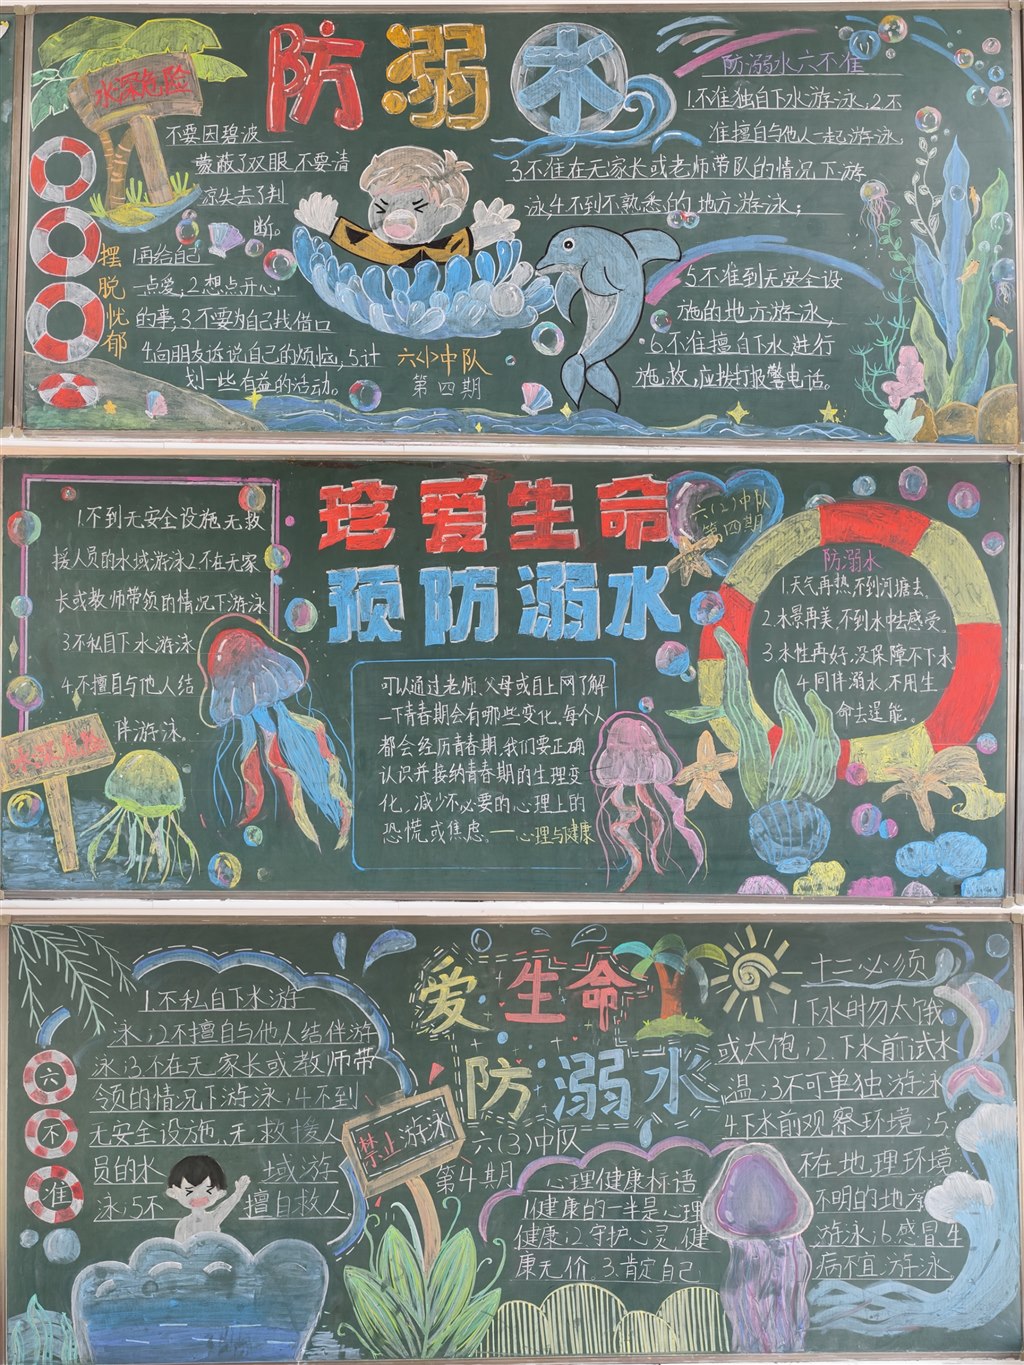 防溺水
水深危险
不要因碧波
蒙蔽了双眼,不要清
凉失去了判
断。
摆脱忧郁
1.再给自己
一点爱;2.想点开心
的事;3.不要为自己找借口
4.向朋友诉说自己的烦恼;5.计
划一些有益的活动。
六(1)中队
第四期
防溺水六不准
1.不准独自下水游泳;2.不
准擅自与他人一起游泳;
3.不准在无家长或老师带队的情况下游
泳;4.不到不熟悉的地方游泳;
5.不准到无安全设
施的地方游泳;
6.不准擅自下水进行
施救,应拨打报警电话。
珍爱生命
预防溺水
六(2)中队
第四期
1.不到无安全设施,无救
援人员的水域游泳2.不在无家
长或教师带领的情况下游泳
3.不私自下水游泳
4.不擅自与他人结
伴游泳。
水深危险
可以通过老师、父母或自上网了解
一下青春期会有哪些变化,每个人
都会经历青春期,我们要正确
认识并接纳青春期的生理变
化,减少不必要的心理上的
恐慌或焦虑。——心理与健康
防溺水
1.天气再热,不到河塘去。
2.水景再美,不到水中去感受。
3.水性再好,没保障不下水
4.同伴溺水,不用生
命去逞能。
爱生命
防溺水
六(3)中队
第4期
六不准
1.不私自下水游
泳;2.不擅自与他人结伴游
泳;3.不在无家长或教师带
领的情况下游泳;4.不到
无安全设施、无救援人
员的水域游
泳;5.不擅自救人
禁止游泳
心理健康标语
1.健康的一半是心理
健康;2.守护心灵,健
康无价 3.肯定自己
十二必须
1.下水时勿太饿
或太饱;2.下水前试水
温;3.不可单独游泳
4.下水前观察环境;5.
不在地理环境
不明的地
游泳;6.感冒、生
病不宜游泳